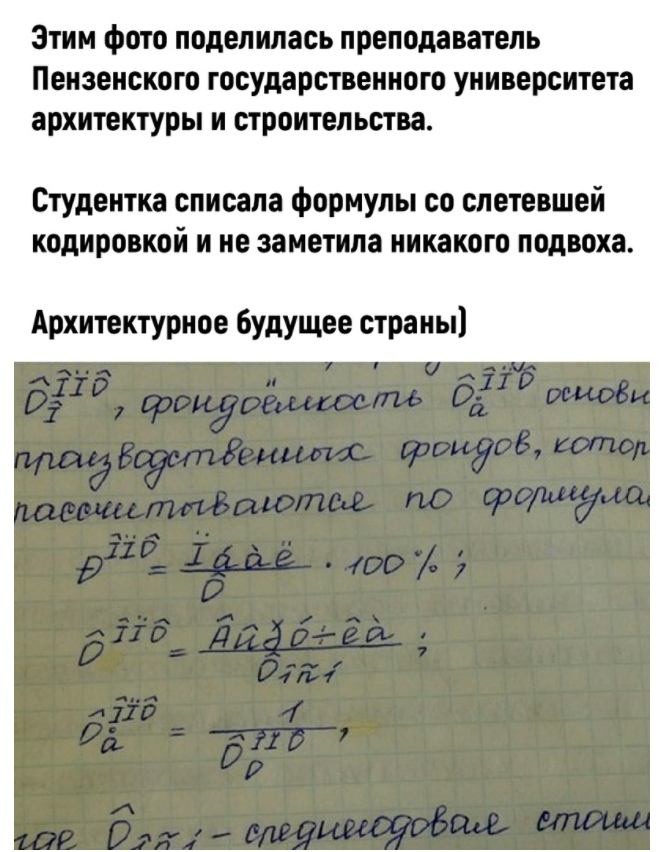 Этим фото поделилась преподаватель
Пензенского государственного университета
архитектуры и строительства.
Студентка списала формулы со слетевшей
кодировкой и не заметила никакого подвоха.
Архитектурное будущее страны)
Ô ÎÏÔ Î , фондоёмкость Ô ÎÏÔ å основн
производственных фондов, котор
рассчитываются по формула
Ð ÎÏÔ = Ïáàë / Ô · 100 % ;
Ô ÎÏÔ = Âûðó÷êà / Ôîñí ;
Ô ÎÏÔ å = 1 / Ô ÎÏÔ О ,
где Ôîñí - среднегодовая стоим